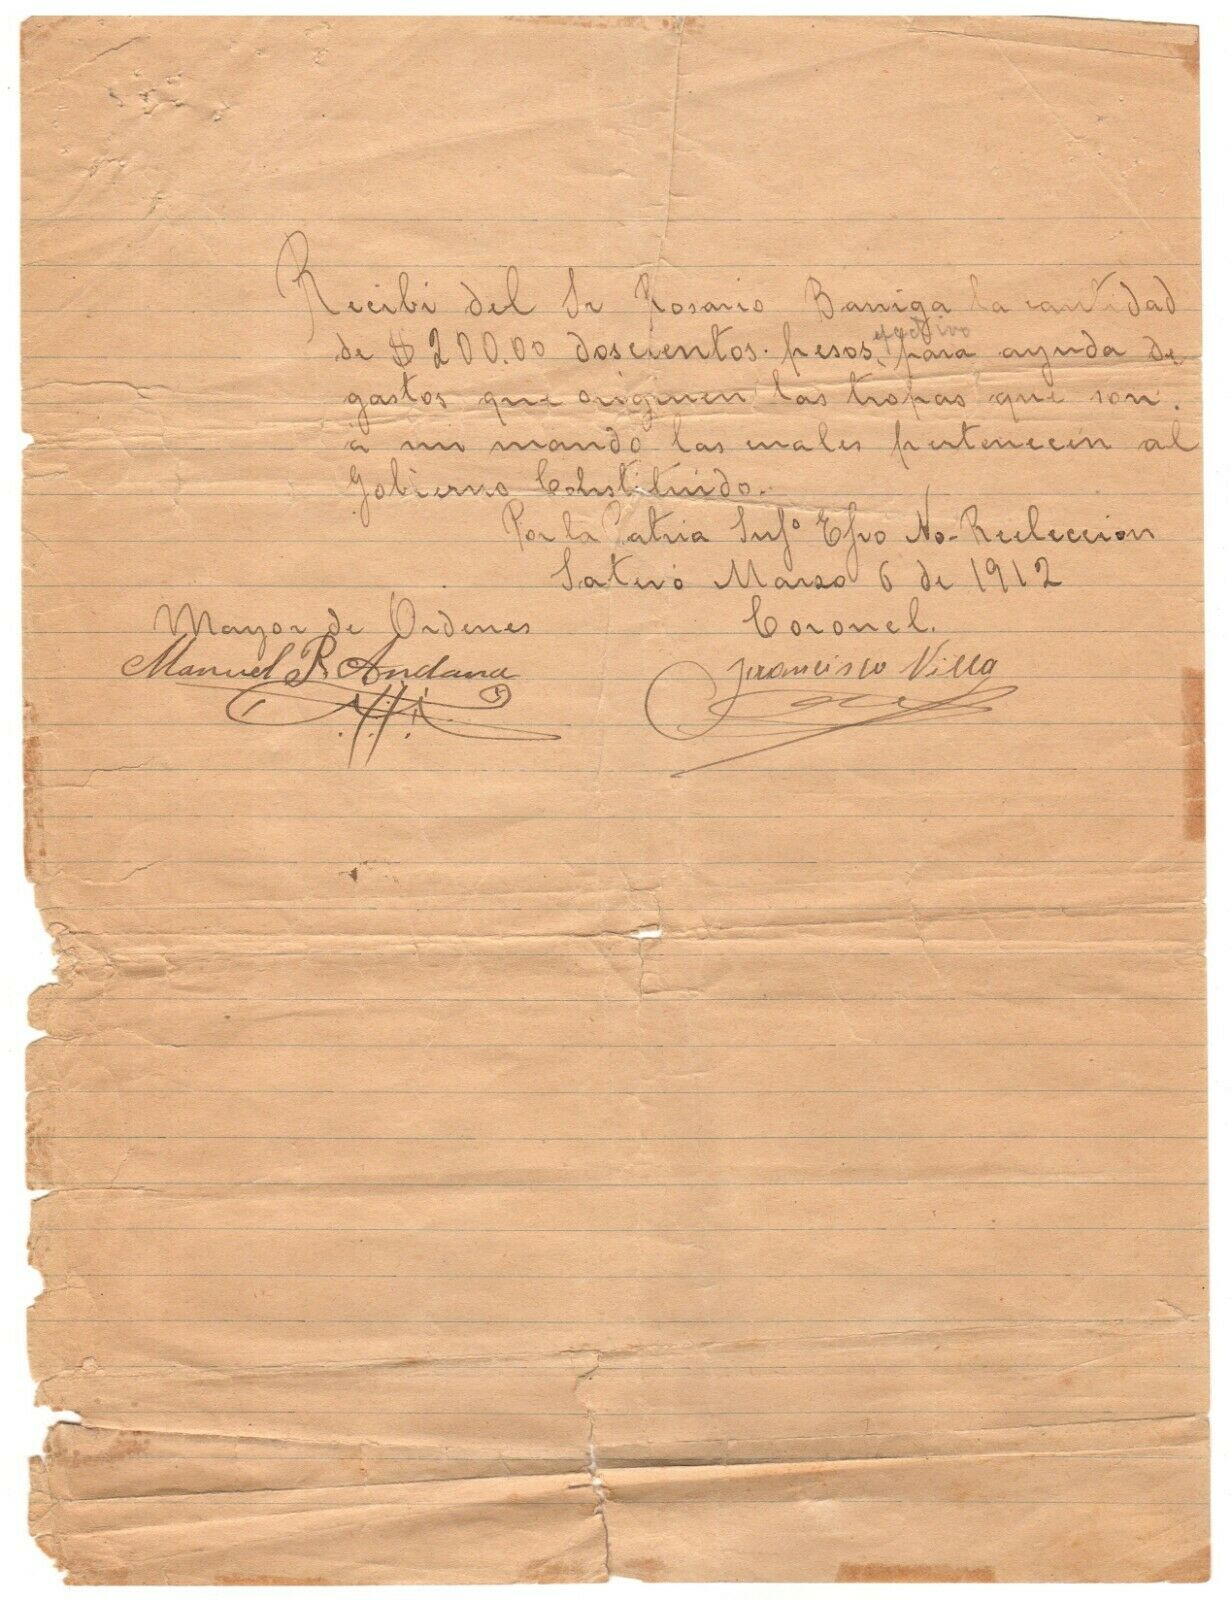 Recibi del Sr Rosario Barriga la cantidad
de $ 200.00 doscientos. pesos, efectivo para ayuda de
gastos que originen las tropas que son.
á mi mando las cuales pertenecen al
Gobierno Constituido.
Por la Patria Sufº Efvo No-Reeleccion
Satevó Marzo 6 de 1912
Mayor de Ordenes
Coronel.
Manuel R. Andana
Francisco Villa